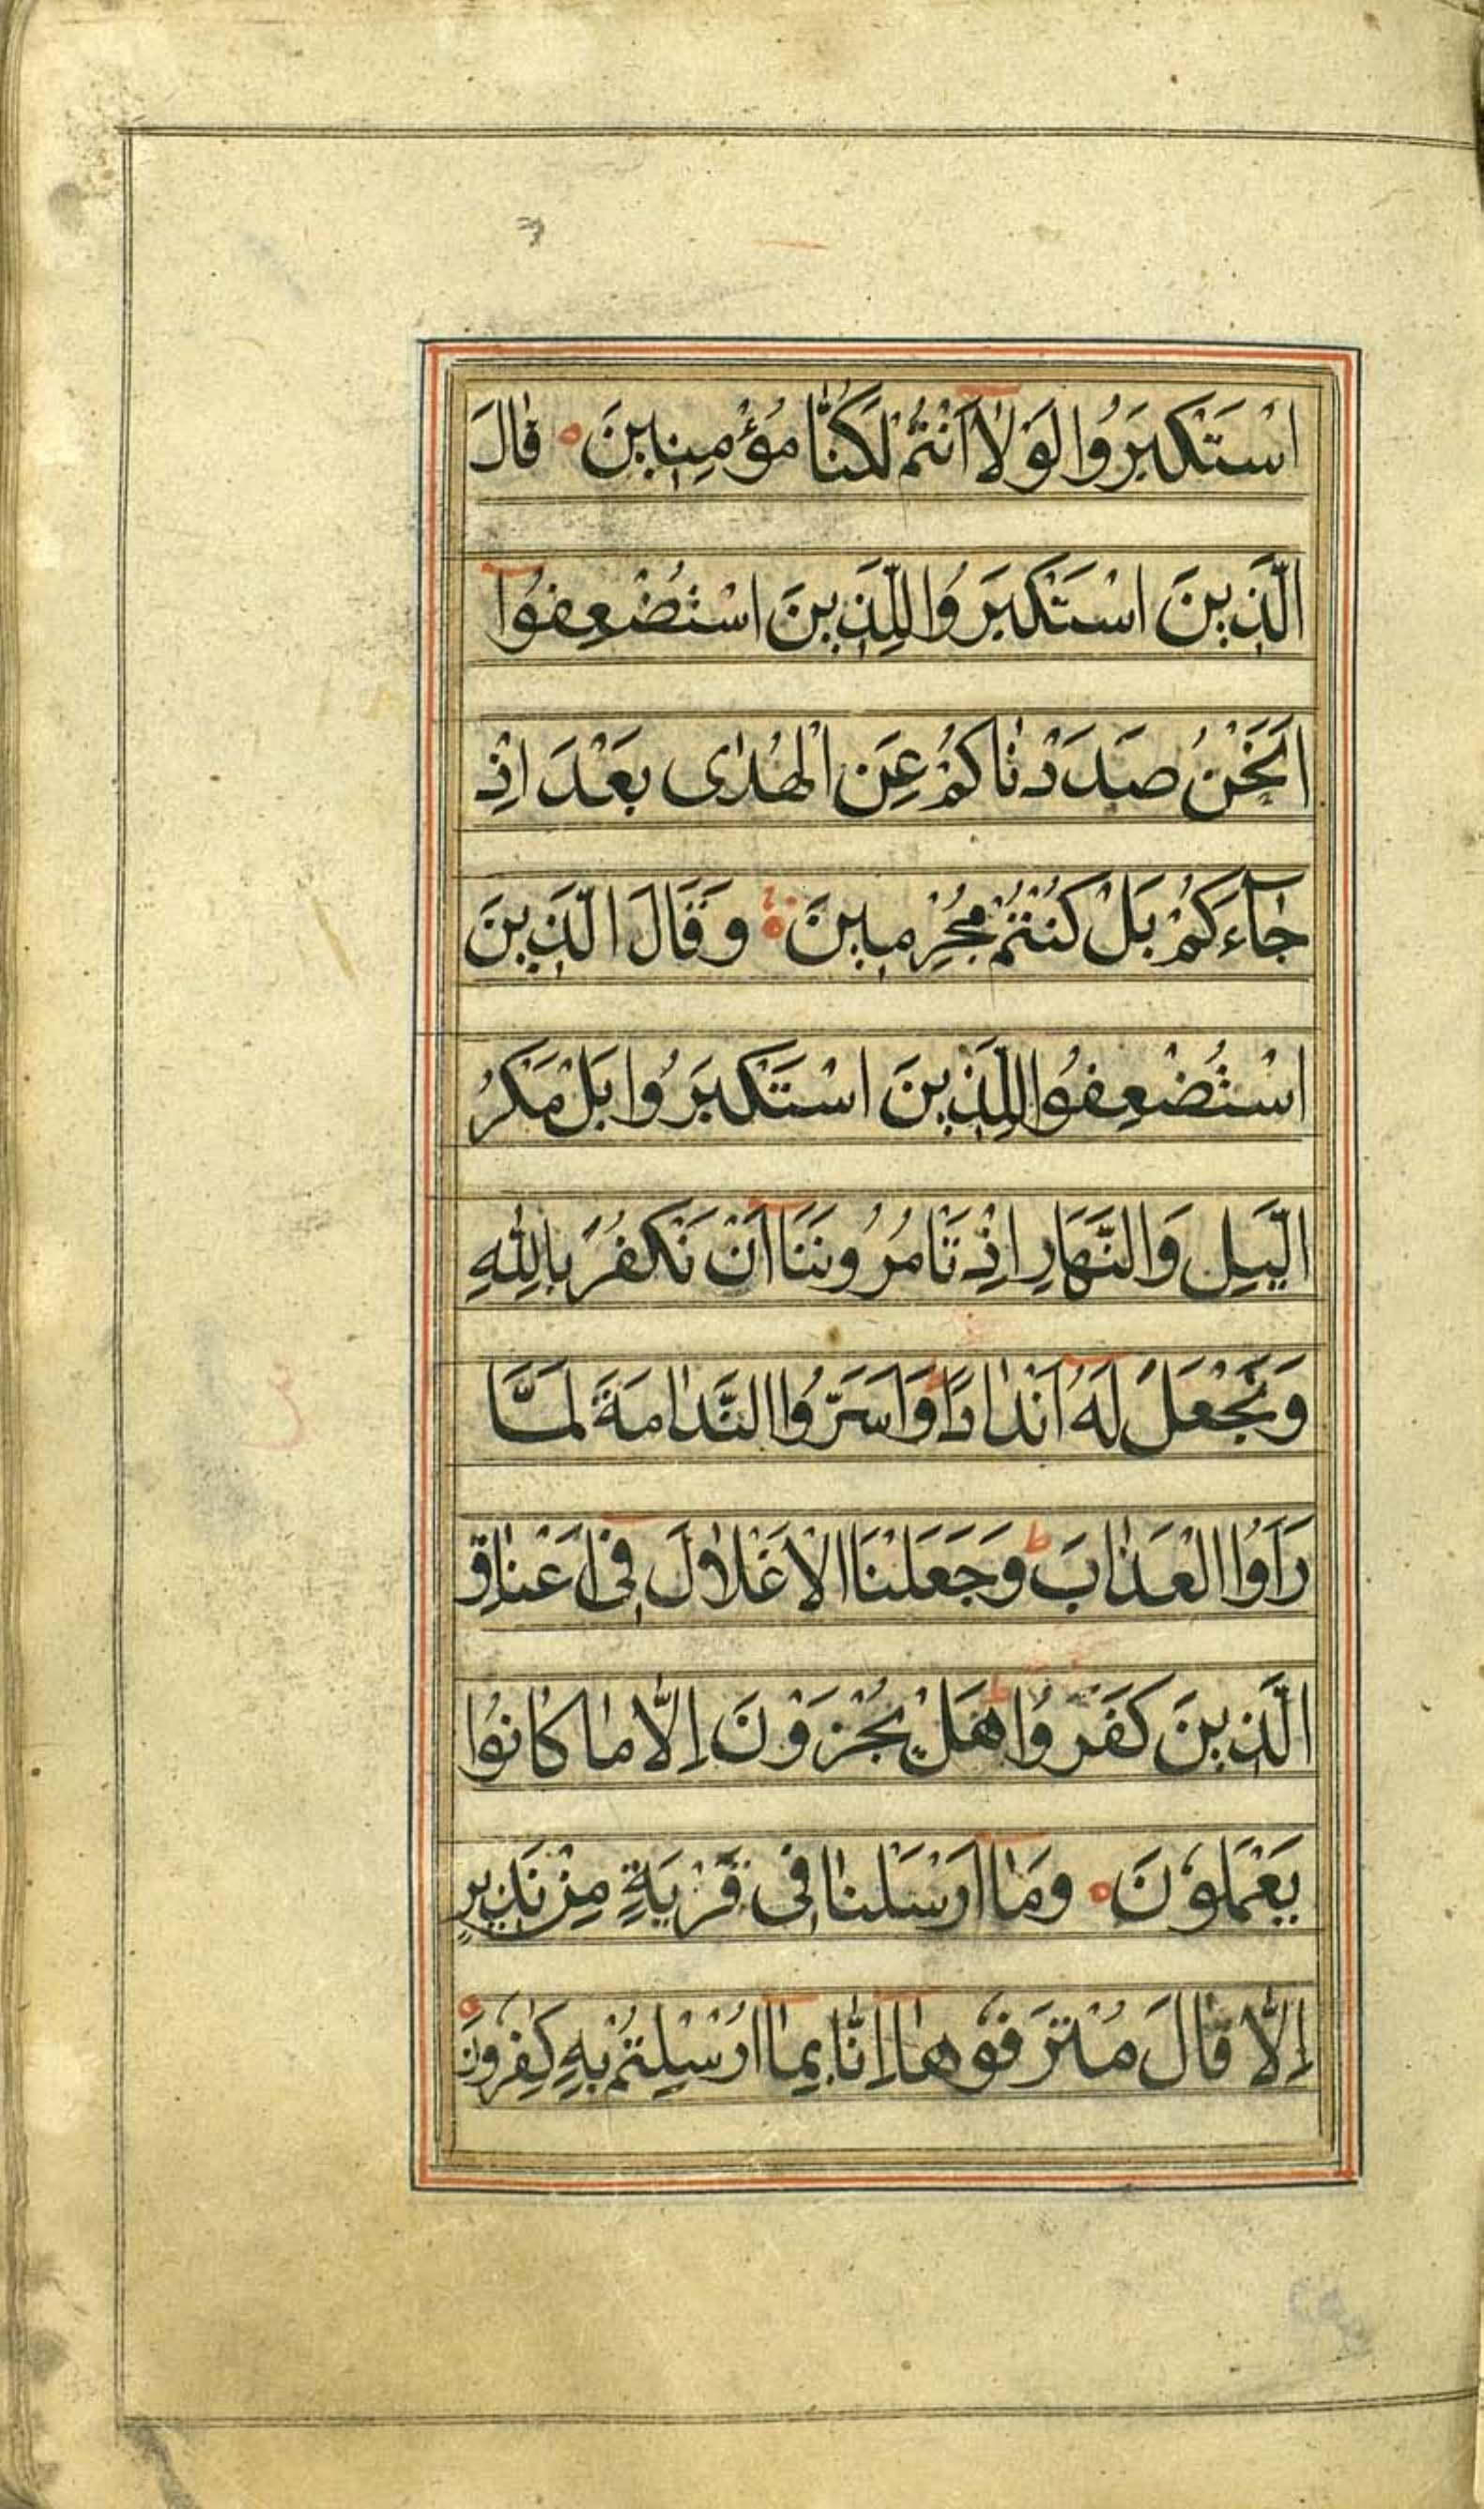 اسْتَكْبَرُوا لَوْلَا أَنْتُمْ لَكُنَّا مُؤْمِنِينَ ۝ قَالَ
الَّذِينَ اسْتَكْبَرُوا لِلَّذِينَ اسْتُضْعِفُوا
اَنَحْنُ صَدَدْنَاكُمْ عَنِ الْهُدٰى بَعْدَ اِذْ
جَآءَكُمْ بَلْ كُنْتُمْ مُجْرِمِينَ ۝ وَقَالَ الَّذِينَ
اسْتُضْعِفُوا لِلَّذِينَ اسْتَكْبَرُوا بَلْ مَكْرُ
الَّيْلِ وَالنَّهَارِ اِذْ تَامُرُونَنَا اَنْ نَكْفُرَ بِاللّٰهِ
وَنَجْعَلَ لَهُ اَنْدَادًا وَاَسَرُّوا النَّدَامَةَ لَمَّا
رَاَوُا الْعَذَابَ ط وَجَعَلْنَا الْاَغْلَالَ فِى اَعْنَاقِ
الَّذِينَ كَفَرُوا هَلْ يُجْزَوْنَ اِلَّا مَا كَانُوا
يَعْمَلُونَ ۝ وَمَا اَرْسَلْنَا فِى قَرْيَةٍ مِنْ نَذِيرٍ
اِلَّا قَالَ مُتْرَفُوهَا اِنَّا بِمَا اُرْسِلْتُمْ بِهِ كٰفِرُونَ ۝